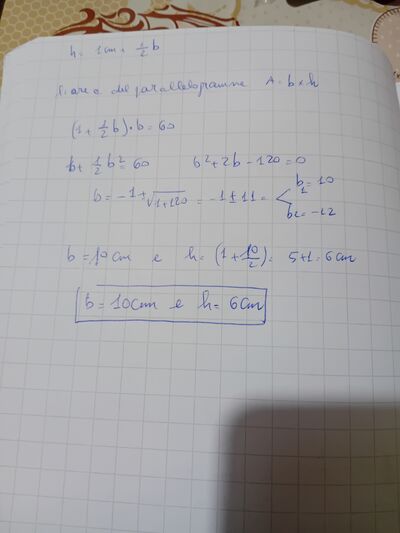 h = 1cm + 1/2 b
l'area del parallelogramma A = b × h
(1 + 1/2 b) · b = 60
b + 1/2 b² = 60 b² + 2b - 120 = 0
b = -1 ± √1+120 = -1 ± 11 = b1 = 10
b2 = -12
b = 10 cm e h = (1 + 10/2) = 5+1 = 6cm
b = 10cm e h = 6cm